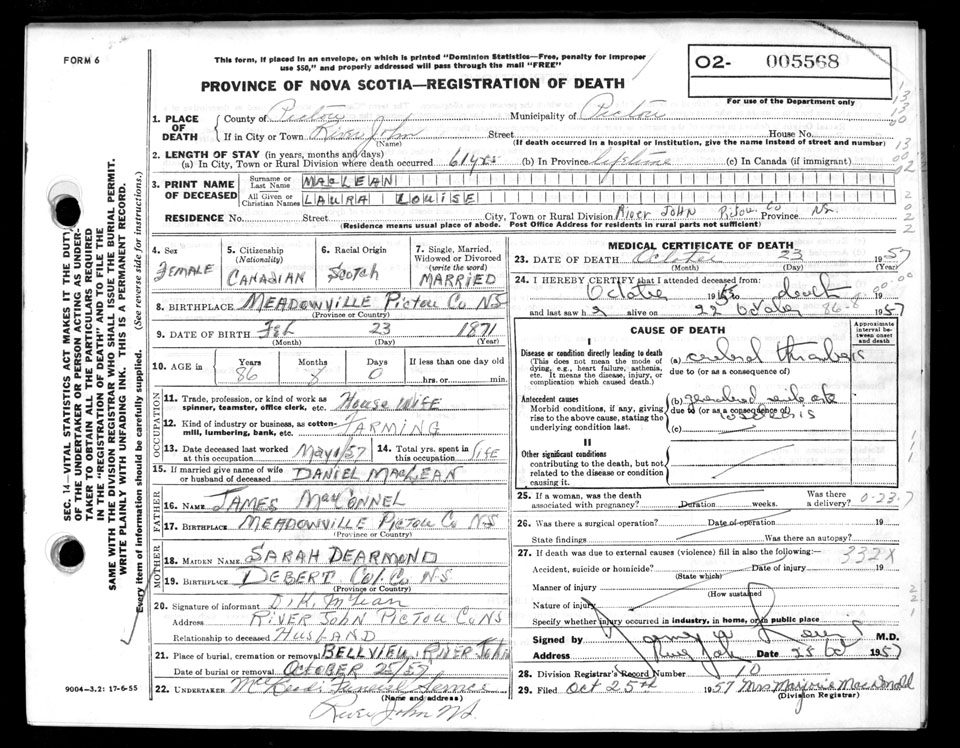 FORM 6
This form, if placed in an envelope, on which is printed "Dominion Statistics—Free, penalty for improper
use $50," and properly addressed will pass through the mail "FREE"
O2- 005568
For use of the Department only
PROVINCE OF NOVA SCOTIA—REGISTRATION OF DEATH
1. PLACE OF DEATH
County of Pictou Municipality of Pictou
If in City or Town River John Street House No.
(Name) (If death occurred in a hospital or institution, give the name instead of street and number)
2. LENGTH OF STAY (in years, months and days)
(a) In City, Town or Rural Division where death occurred 61 yrs (b) In Province lifetime (c) In Canada (if immigrant)
3. PRINT NAME OF DECEASED
Surname or Last Name MacLEAN
All Given or Christian Names LAURA LOUISE
RESIDENCE No. Street City, Town or Rural Division River JOHN Pictou Co Province NS.
(Residence means usual place of abode. Post Office Address for residents in rural parts not sufficient)
4. Sex FEMALE
5. Citizenship (Nationality) CANADIAN
6. Racial Origin Scotch
7. Single, Married, Widowed or Divorced (write the word) MARRIED
8. BIRTHPLACE MEADOWVILLE PICTOU Co NS
(Province or Country)
9. DATE OF BIRTH Feb 23 1871
(Month) (Day) (Year)
10. AGE in Years 86 Months 8 Days 0 If less than one day old hrs. or min.
OCCUPATION
11. Trade, profession, or kind of work as spinner, teamster, office clerk, etc. House WIFE
12. Kind of industry or business, as cotton-mill, lumbering, bank, etc. FARMING
13. Date deceased last worked at this occupation May 1/57
14. Total yrs. spent in this occupation life
15. If married give name of wife or husband of deceased DANIEL MacLEAN
FATHER
16. NAME JAMES MacCONNEL
17. BIRTHPLACE MEADOWVILLE PICTOU Co NS
(Province or Country)
MOTHER
18. MAIDEN NAME SARAH DEARMOND
19. BIRTHPLACE DEBERT Col. Co NS
(Province or Country)
20. Signature of informant D. K. McLean
Address RIVER JOHN PICTOU Co NS
Relationship to deceased HUSBAND
21. Place of burial, cremation or removal BELLVIEW RIVER John
Date of burial or removal OCTOBER 25/57
22. UNDERTAKER
(Name and address)
River John N.S.
MEDICAL CERTIFICATE OF DEATH
23. DATE OF DEATH October 23 1957
(Month) (Day) (Year)
24. I HEREBY CERTIFY that I attended deceased from:
October 19 to death 19
and last saw h alive on 22 October 1957
86-8
CAUSE OF DEATH
Approximate interval between onset and death
I
Disease or condition directly leading to death
(This does not mean the mode of dying, e.g., heart failure, asthenia, etc. It means the disease, injury, or complication which caused death.)
(a) cerebral thrombosis
due to (or as a consequence of)
Antecedent causes
Morbid conditions, if any, giving rise to the above cause, stating the underlying condition last.
(b) generalized
due to (or as a consequence of)
(c)
II
Other significant conditions
contributing to the death, but not related to the disease or condition causing it.
25. If a woman, was the death associated with pregnancy? Duration weeks. Was there a delivery? 0-23-7
26. Was there a surgical operation? Date of operation 19
State findings Was there an autopsy?
27. If death was due to external causes (violence) fill in also the following:— 332X
Accident, suicide or homicide? Date of injury 19
(State which)
Manner of injury
(How sustained)
Nature of injury
Specify whether injury occurred in industry, in home, or in public place
Signed by M.D.
Address River John Date 25 Oct 1957
28. Division Registrar's Record Number 10
29. Filed Oct 25th 1957 Mrs Marjorie MacDonald
(Division Registrar)
SEC. 14—VITAL STATISTICS ACT MAKES IT THE DUTY
OF THE UNDERTAKER OR PERSON ACTING AS UNDER-
TAKER TO OBTAIN ALL THE PARTICULARS REQUIRED
IN THE "REGISTRATION OF DEATH" AND TO FILE THE
SAME WITH THE DIVISION REGISTRAR WHO SHALL ISSUE THE BURIAL PERMIT.
WRITE PLAINLY WITH UNFADING INK. THIS IS A PERMANENT RECORD.
Every item of information should be carefully supplied. (See reverse side for instructions.)
9004—3.2: 17-6-55